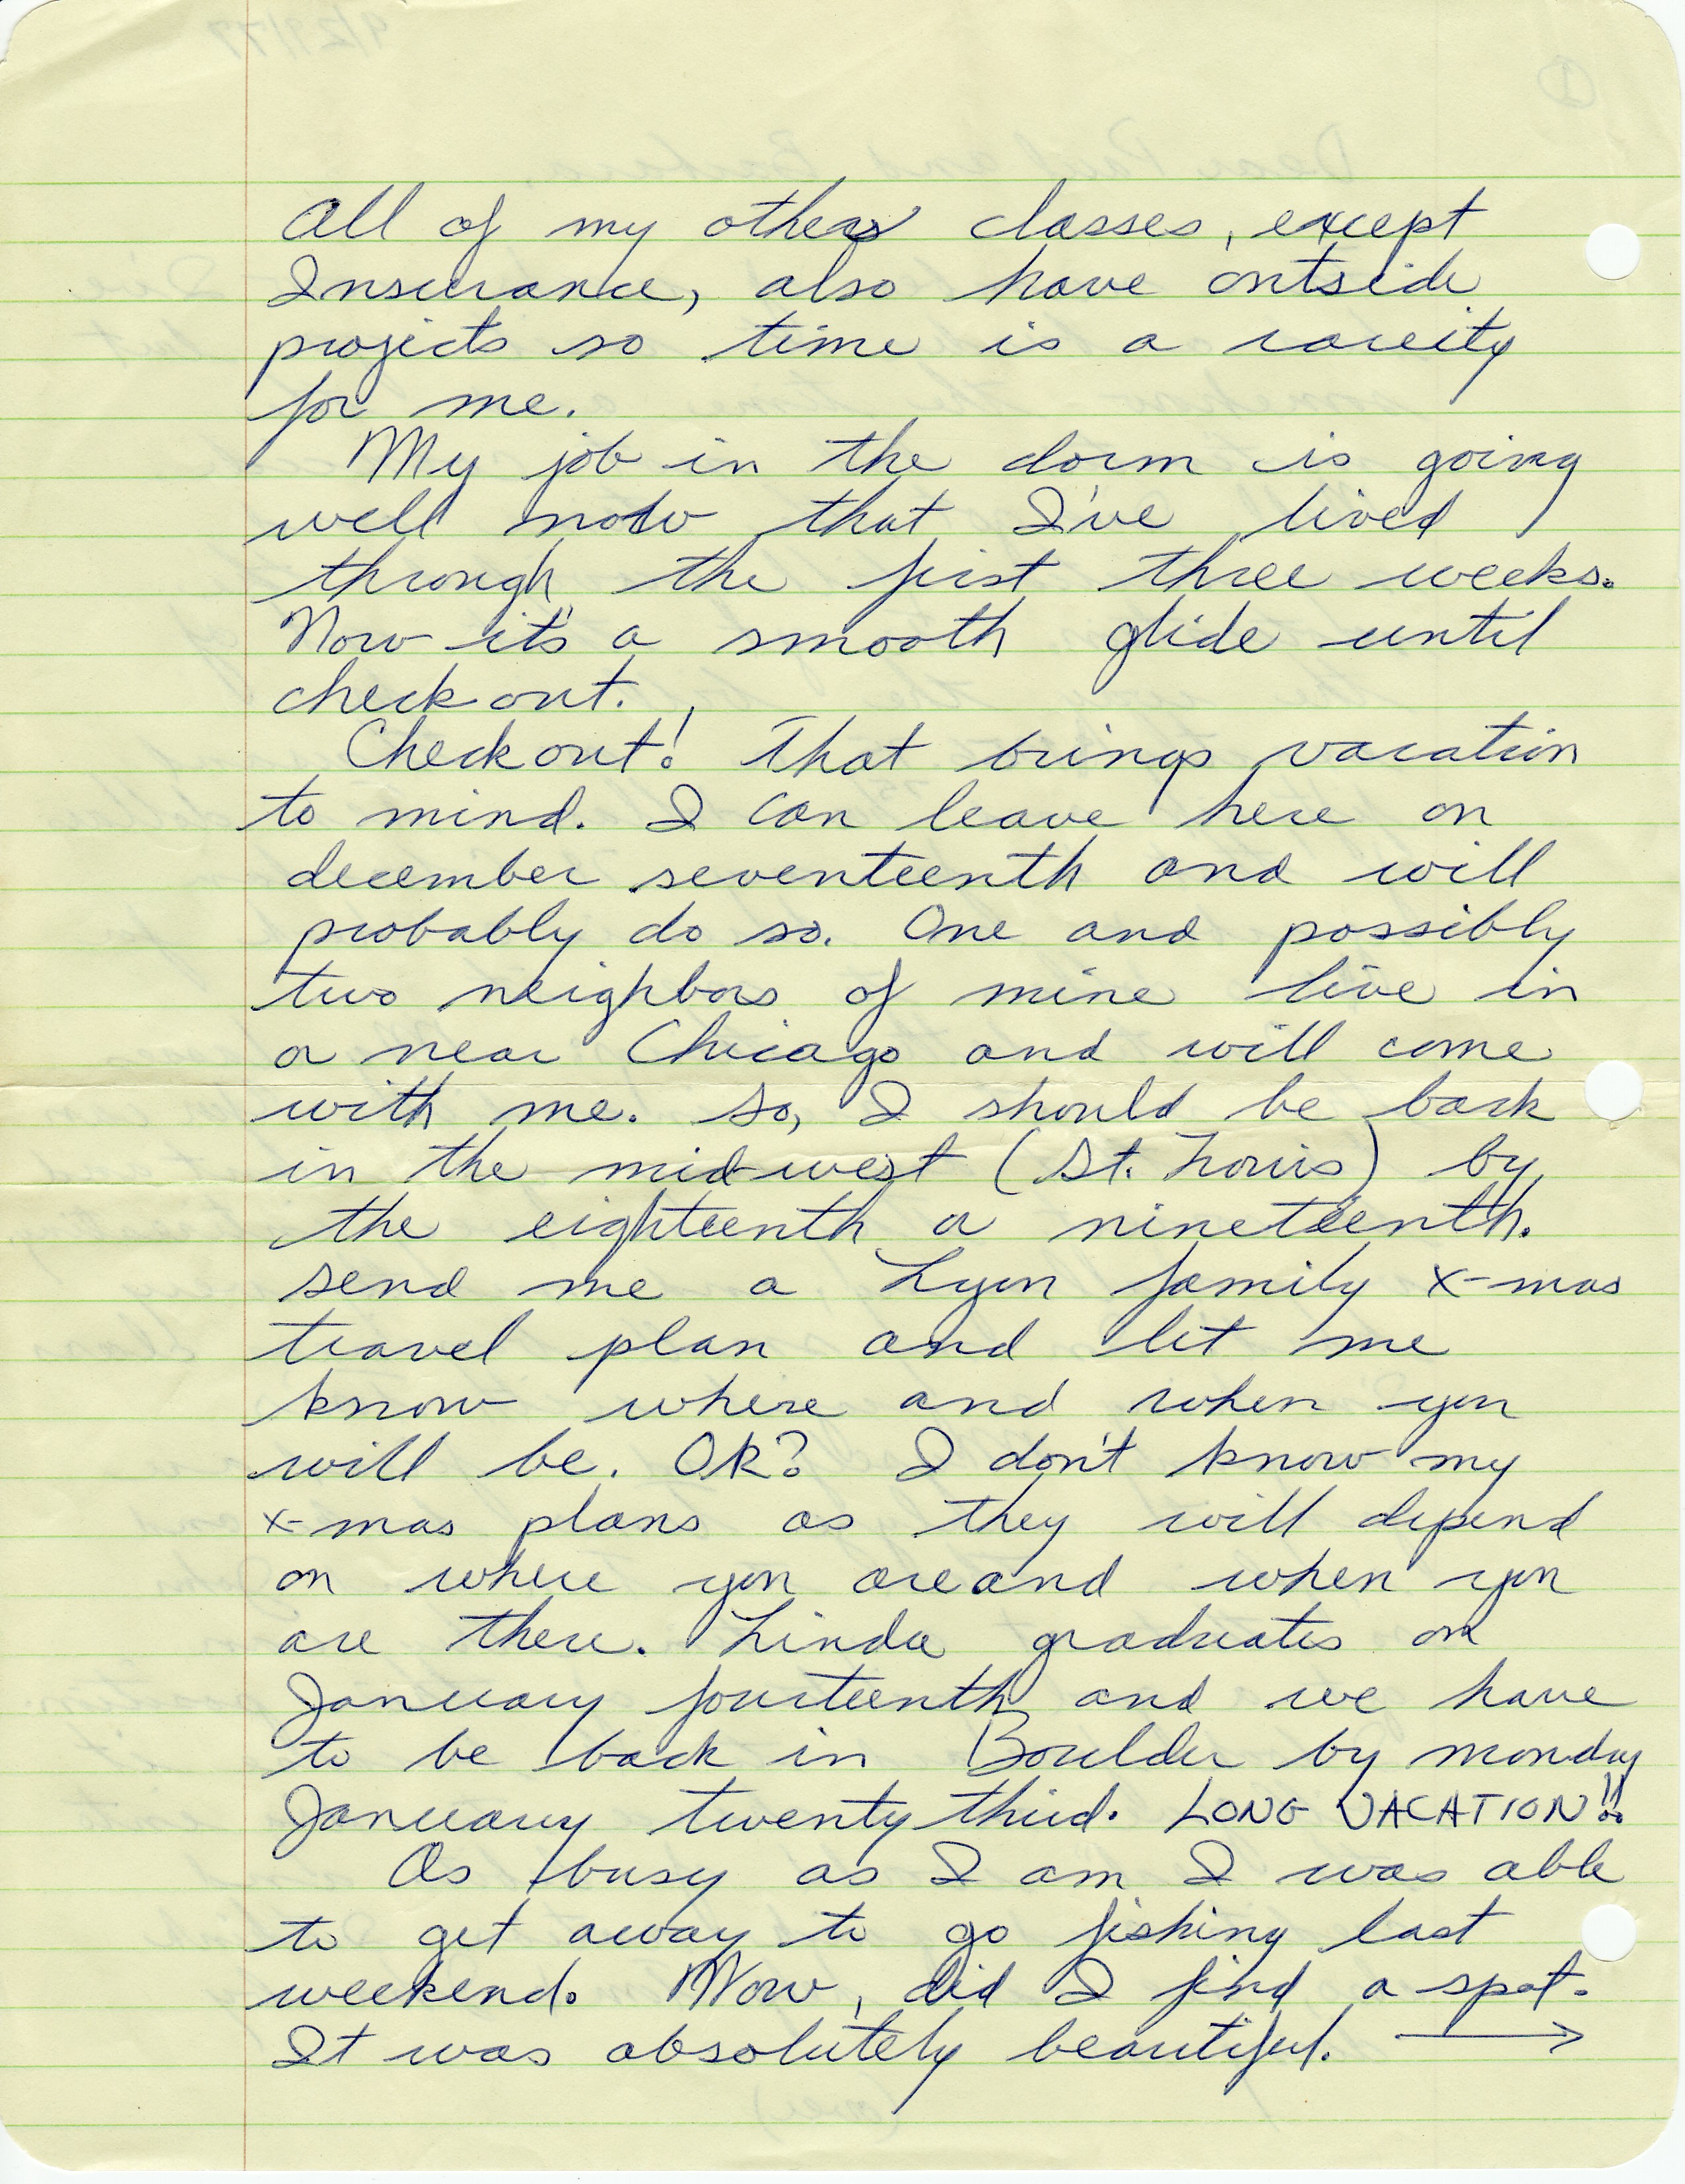 All of my other classes, except
Insurance, also have outside
projects so time is a rareity
for me.
My job in the dorm is going
well now that I've lived
through the first three weeks.
Now it's a smooth glide until
check out.
Check out! That brings vacation
to mind. I can leave here on
december seventeenth and will
probably do so. One and possibly
two neighbors of mine live in
or near Chicago and will come
with me. So, I should be back
in the mid-west (St. Louis) by
the eighteenth or nineteenth.
Send me a Lyon family x-mas
travel plan and let me
know where and when you
will be. OK? I don't know my
x-mas plans as they will depend
on where you are and when you
are there. Linda graduates on
January fourteenth and we have
to be back in Boulder by monday
January twenty third. LONG VACATION!!
As busy as I am I was able
to get away to go fishing last
weekend. Wow, did I find a spot.
It was absolutely beautiful. →